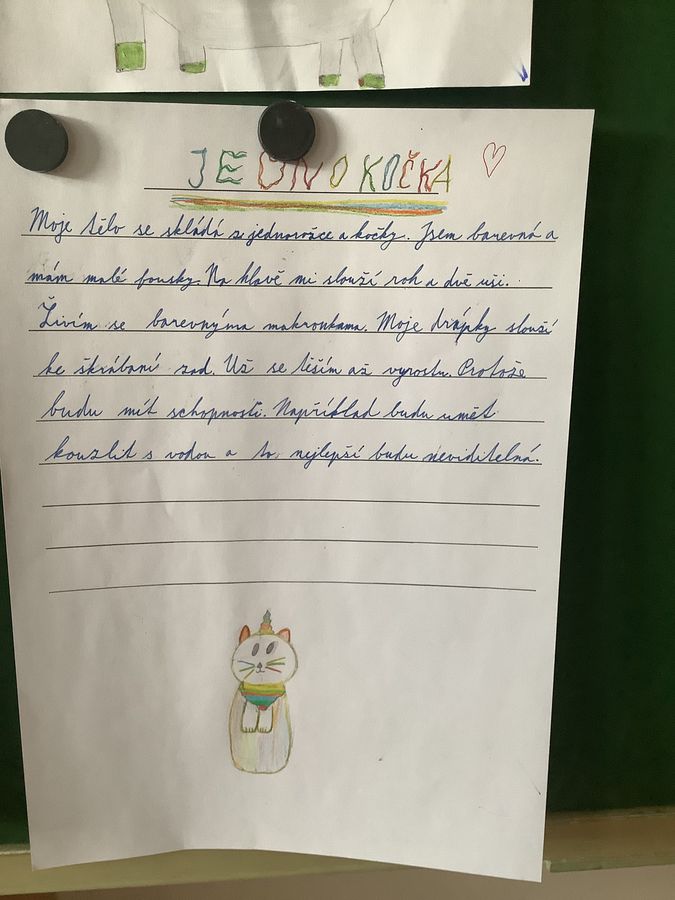 JEDNOKOČKA
Moje tělo se skládá z jednorožce a kočky. Jsem barevná a
mám malé fousky. Na hlavě mi slouží roh a dvě uši.
Živím se barevnýma makronkama. Moje drápky slouží
ke škrábaní zad. Už se těším až vyrostu. Protože
budu mít schopnosti. Například budu umět
kouzlit s vodou a to nejlepší budu neviditelná.